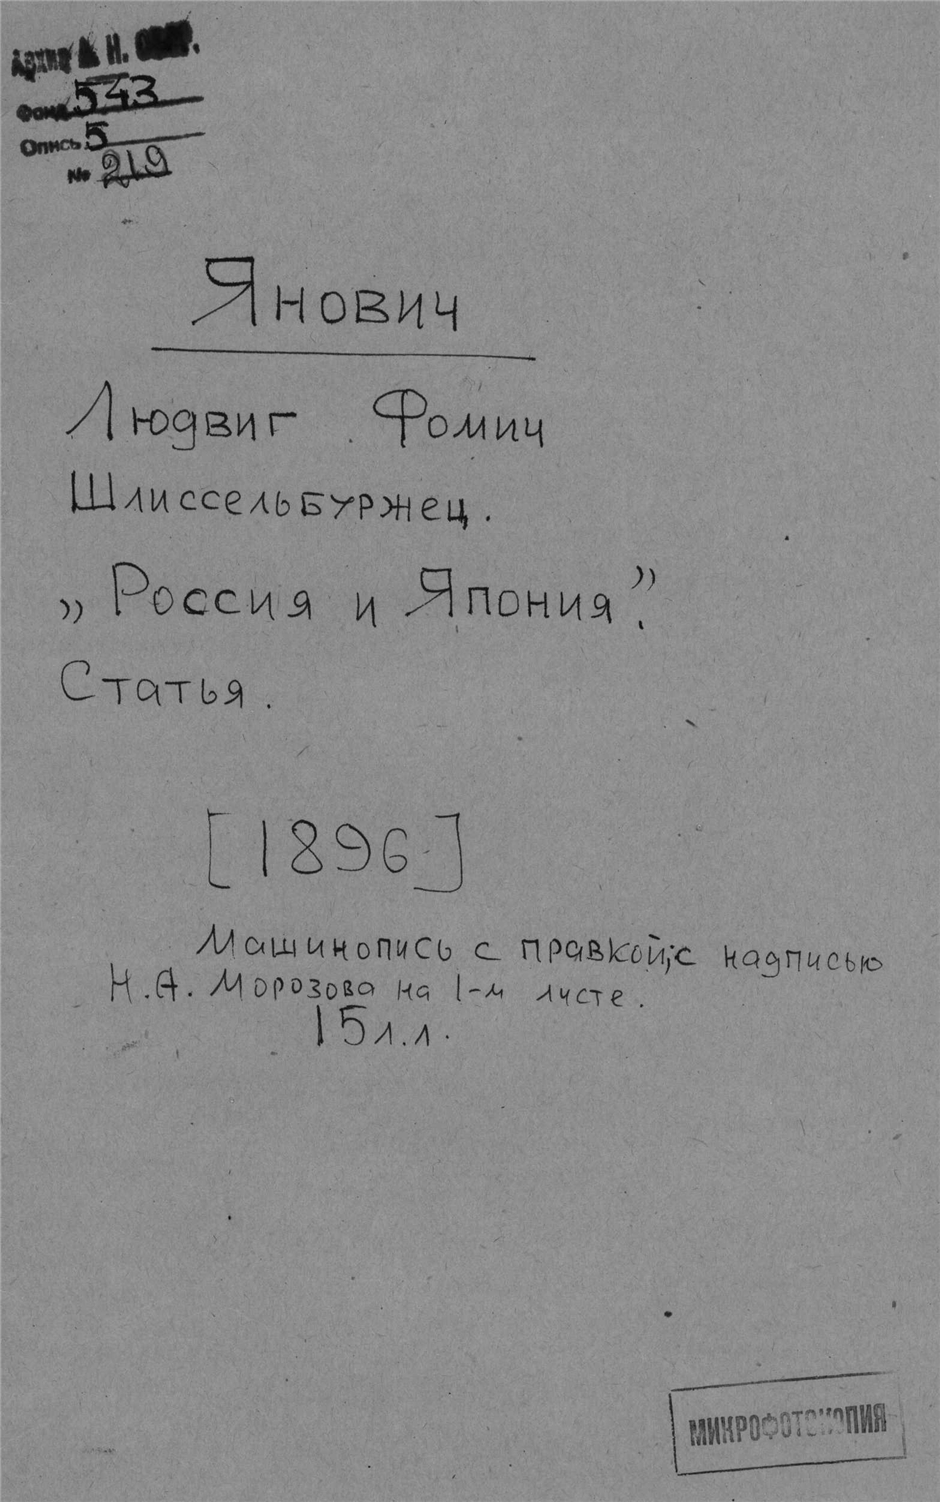 Архив А Н. СССР.
Фонд 543
Опись 5
№ 219
Янович
Людвиг Фомич
Шлиссельбуржец.
„Россия и Япония”.
Статья.
[1896]
Машинопись с правкой, с надписью
Н.А. Морозова на 1-м листе.
15 л.л.
МИКРОФОТОКОПИЯ